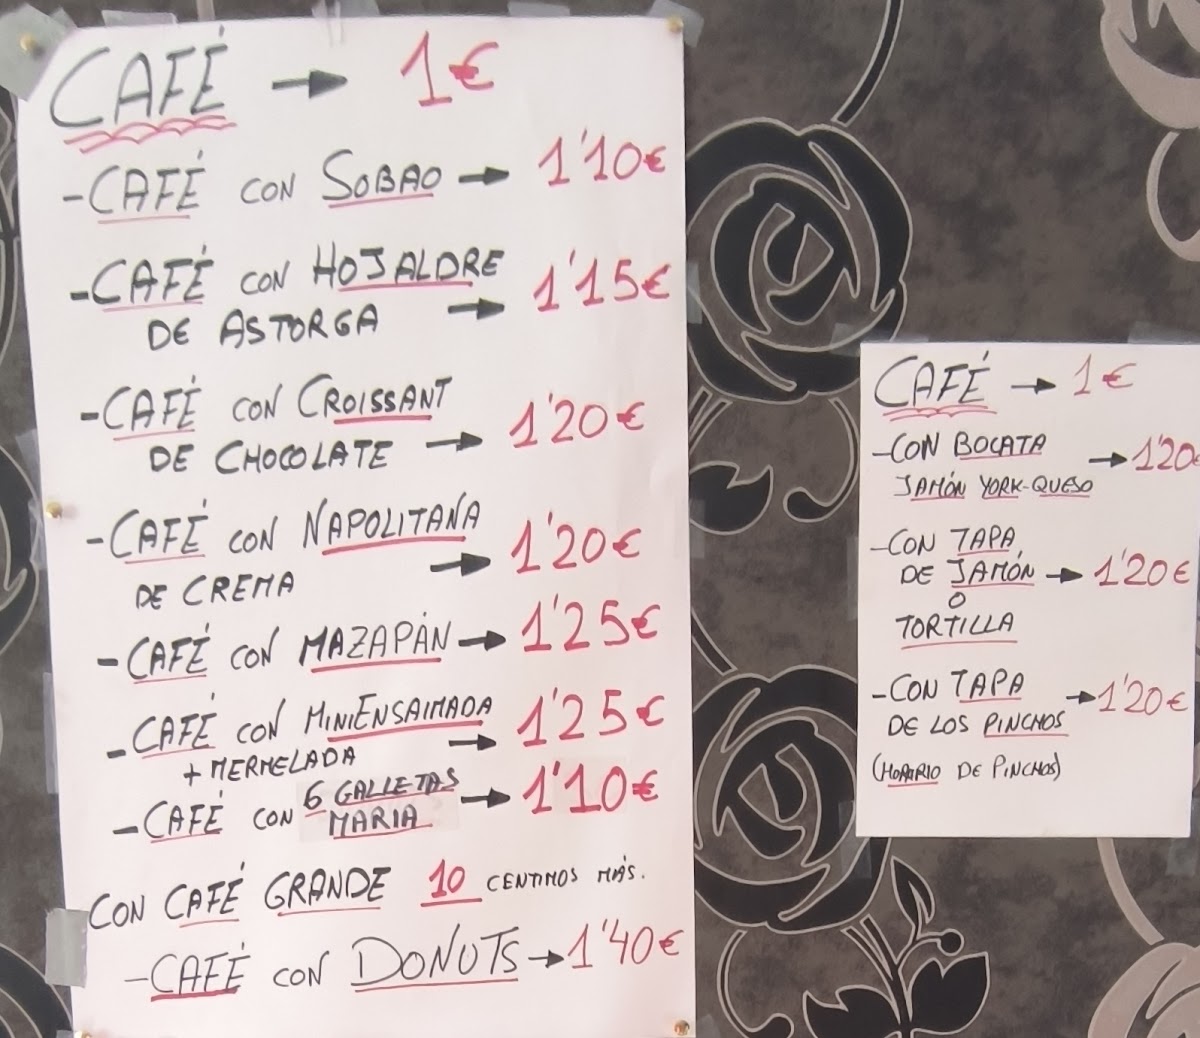 CAFÉ → 1€
- CAFÉ CON SOBAO → 1'10€
- CAFÉ CON HOJALDRE
DE ASTORGA → 1'15€
- CAFÉ CON CROISSANT
DE CHOCOLATE → 1'20€
- CAFÉ CON NAPOLITANA
DE CREMA → 1'20€
- CAFÉ CON MAZAPÁN → 1'25€
- CAFÉ CON MINIENSAIMADA
+ MERMELADA → 1'25€
- CAFÉ CON 6 GALLETAS
MARIA → 1'10€
CON CAFÉ GRANDE 10 CENTIMOS MÁS.
- CAFÉ CON DONUTS → 1'40€
CAFÉ → 1€
- CON BOCATA → 1'20€
JAMÓN YORK-QUESO
- CON TAPA
DE JAMÓN → 1'20€
O
TORTILLA
- CON TAPA → 1'20€
DE LOS PINCHOS
(HORARIO DE PINCHOS)